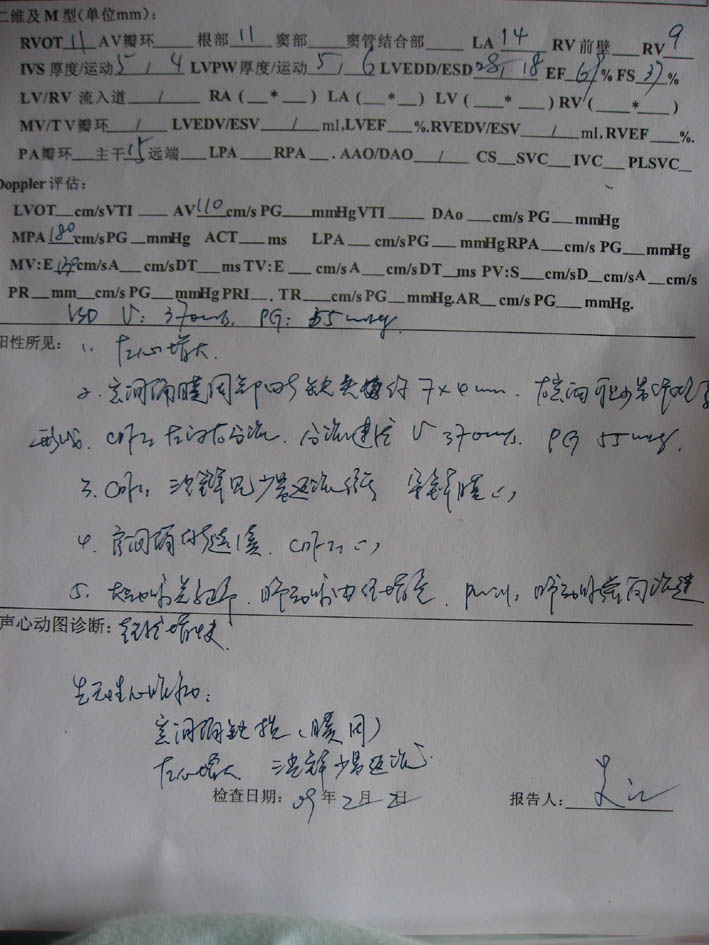 二维及M型(单位mm):
RVOT 11 AV瓣环___ 根部 11 窦部___ 窦管结合部___ LA 14 RV前壁___ RV 9
IVS厚度/运动 5 / 4 LVPW厚度/运动 5 / 6 LVEDD/ESD 28 / 18 EF 68 % FS 37 %
LV/RV 流入道___/___ RA (__*__) LA (__*__) LV (__*__) RV (__*__)
MV/TV瓣环___/___ LVEDV/ESV___/___ml,LVEF___%.RVEDV/ESV___/___ml,RVEF___%.
PA瓣环___主干 15 远端___LPA___RPA___.AAO/DAO___/___ CS__SVC__IVC__PLSVC__
Doppler评估:
LVOT__cm/sVTI___ AV 110 cm/s PG___mmHgVTI___ DAo___cm/s PG___mmHg
MPA 180 cm/sPG___mmHg ACT___ms LPA___cm/sPG___mmHgRPA___cm/s PG___mmHg
MV:E cm/sA___cm/sDT___ms TV:E___cm/sA___cm/sDT__ms PV:S___cm/sD__cm/sA__cm/s
PR__mm__cm/s PG___mmHg PRI__. TR___cm/sPG___mmHg.AR__cm/s PG___mmHg.
VSD V: 370cm/s. PG: 55mmHg.
阳性所见: 1. 左心增大.
2. 室间隔膜周部回声缺失约7×4mm.
CDFI: 左向右分流. 分流速度 V 370cm/s. PG 55mmHg.
3. CDFI: 三尖瓣见少量返流信号
4. 房间隔 CDFI: (-)
5. 肺动脉内径增宽. 肺动脉前向流速
声心动图诊断: 轻度增快.
先天性心脏病:
室间隔缺损(膜周)
左心增大 三尖瓣少量返流.
检查日期: 09年2月2日 报告人: